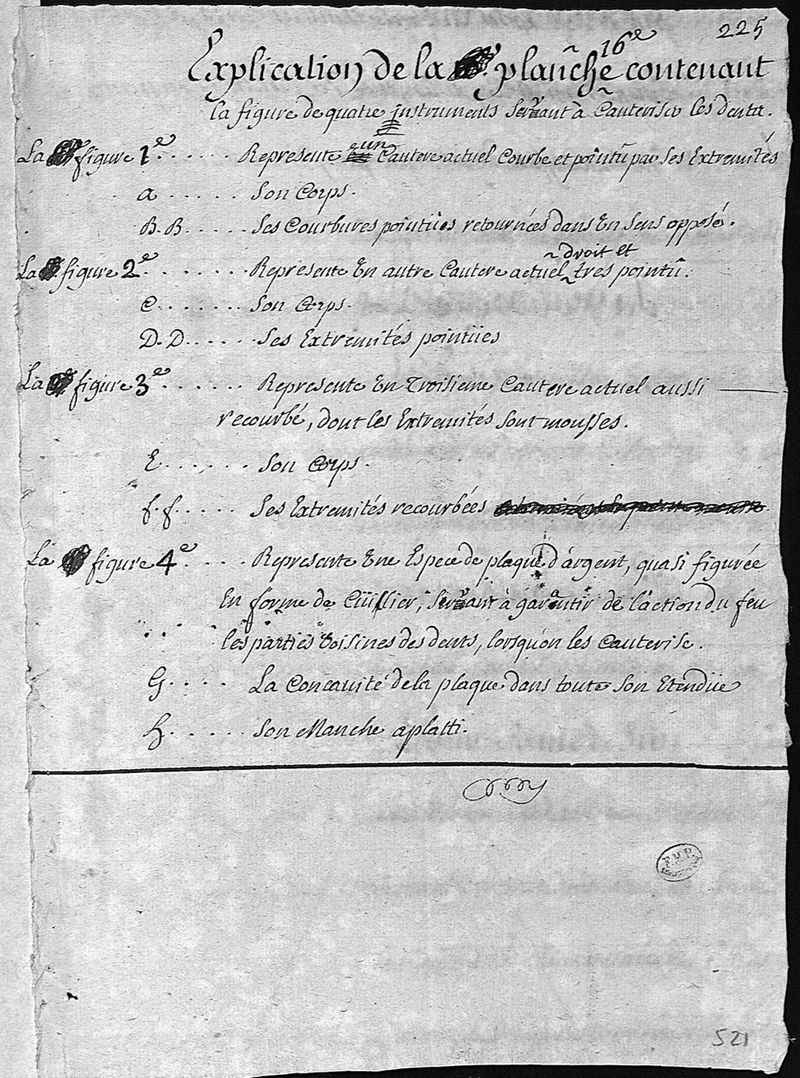 225
16e
Explication de la planche contenant
la figure de quatre instruments servant à Cauteriser les dents.
La figure 1e. . . . . . Represente un Cautere actuel Courbe et pointu par ses Extremités
a . . . . . . Son Corps.
B.B . . . . . Ses Courbures pointües retournées dans En sens opposé.
droit et
La figure 2e. . . . . . Represente En autre Cautere actuel tres pointû.
C . . . . . . Son Corps.
D.D . . . . . Ses Extremités pointües
La figure 3e. . . . . . Represente En Troisieme Cautere actuel aussi
recourbé, dont les Extremités sont mousses.
E . . . . . . Son Corps.
f.f . . . . . Ses Extremités recourbées
La figure 4e. . . . . Represente Ene Espece de plaque d'argent, quasi figurée
En forme de Cuillier, servant à garantir de l'action du feu
les parties voisines des dents, lorsqu'on les Cauterise.
G . . . . La Concavité de la plaque dans toute Son Etendüe
h . . . . . Son Manche aplatti.
521